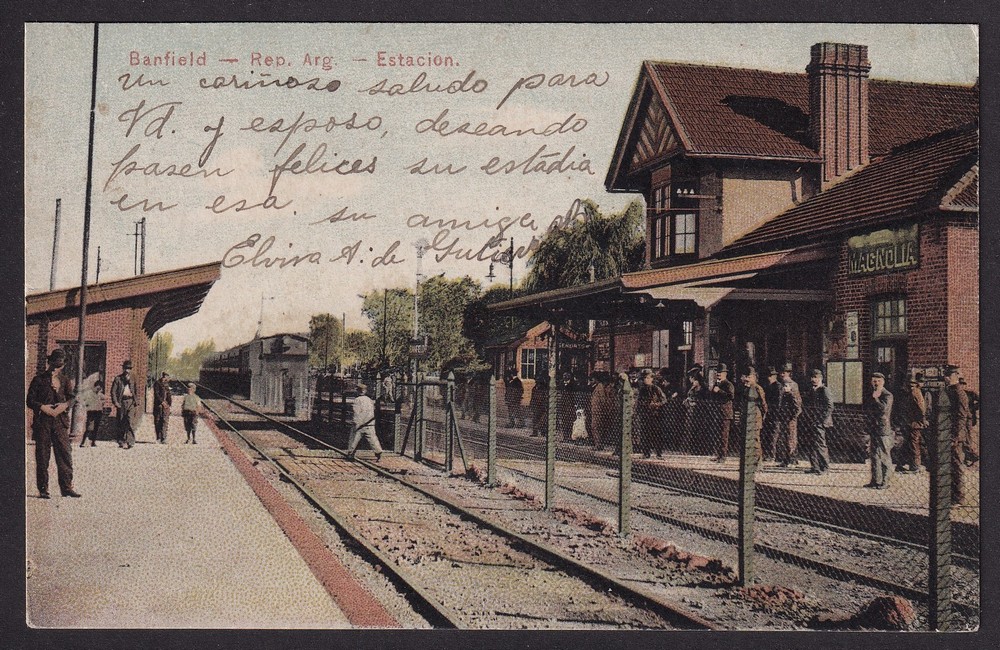 Banfield — Rep. Arg. — Estacion.
Un cariñoso saludo para
Vd. y esposo, deseando
pasen felices su estadia
en esa. su amiga
Elvira A. de
MAGNOLIA